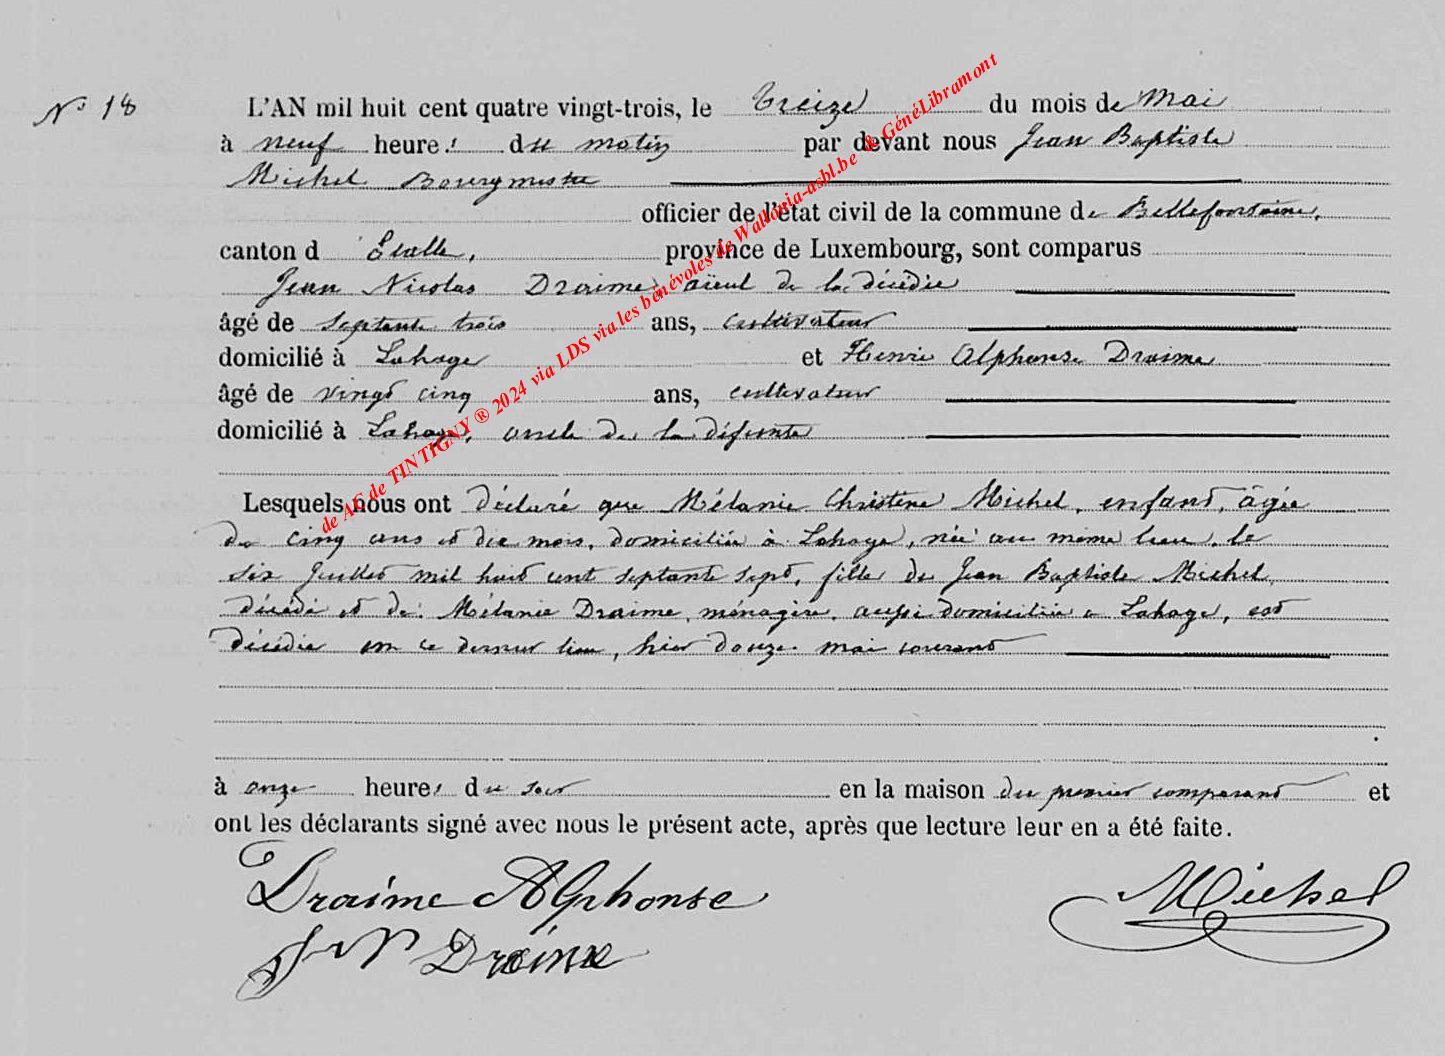 N° 18
L'AN mil huit cent quatre vingt-trois, le Treize du mois de Mai
à neuf heures du matin par devant nous Jean Baptiste
Michel Bourgmestre
officier de l'état civil de la commune de Bellefontaine,
canton d'Etalle, province de Luxembourg, sont comparus
Jean Nicolas Draime, aïeul de la décédée
âgé de septante trois ans, cultivateur
domicilié à Lahage et Henri Alphonse Draime
âgé de vingt cinq ans, cultivateur
domicilié à Lahage, oncle de la défunte
Lesquels nous ont déclaré que Mélanie Christine Michel, enfant, âgée
de cinq ans et dix mois, domiciliée à Lahage, née au même lieu, le
six Juillet mil huit cent septante sept, fille de Jean Baptiste Michel,
décédé et de Mélanie Draime, ménagère, aussi domiciliée à Lahage, est
décédée en ce dernier lieu, hier douze mai courant
à onze heures du soir en la maison du premier comparant et
ont les déclarants signé avec nous le présent acte, après que lecture leur en a été faite.
Draime Alphonse
Michel
J N Draime
de AC de TINTIGNY ® 2024 via LDS via les bénévoles de Wallonia-asbl.be & GénéLibramont